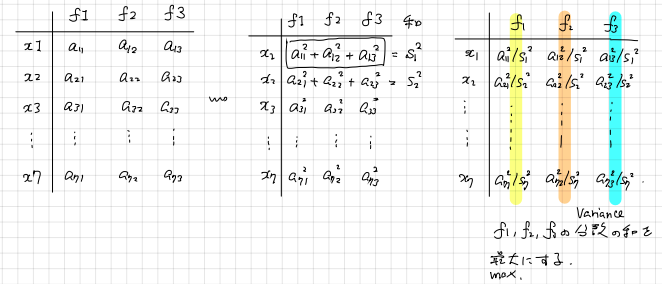 f1 f2 f3
x1 a₁₁ a₁₂ a₁₃
x2 a₂₁ a₂₂ a₂₃
x3 a₃₁ a₃₂ a₃₃
⋮ ⋮ ⋮ ⋮
x7 a₇₁ a₇₂ a₇₃
f1 f2 f3 和
x₁ a₁₁² + a₁₂² + a₁₃² = S₁²
x₂ a₂₁² + a₂₂² + a₂₃² = S₂²
x₃ a₃₁² a₃₂² a₃₃²
⋮ ⋮ ⋮ ⋮
x₇ a₇₁² a₇₂² a₇₃²
f₁ f₂ f₃
x₁ a₁₁²/S₁² a₁₂²/S₁² a₁₃²/S₁²
x₂ a₂₁²/S₂² a₂₂²/S₂² a₂₃²/S₂²
⋮ ⋮ ⋮ ⋮
x₇ a₇₁²/S₇² a₇₂²/S₇² a₇₃²/S₇²
Variance
f1, f₂, f₃の分散の和を
最大にする.
max.